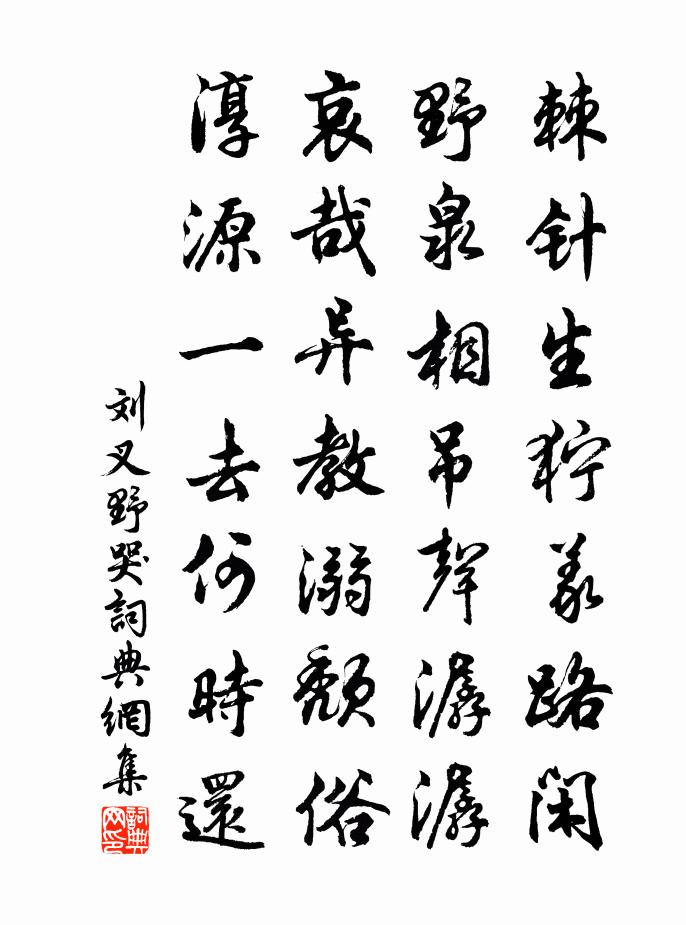 棘针生狞義路闲
野泉相吊聲潺潺
哀哉异教溺頽俗
淳源一去何時還
刘叉野哭詞典網集
詞典网印